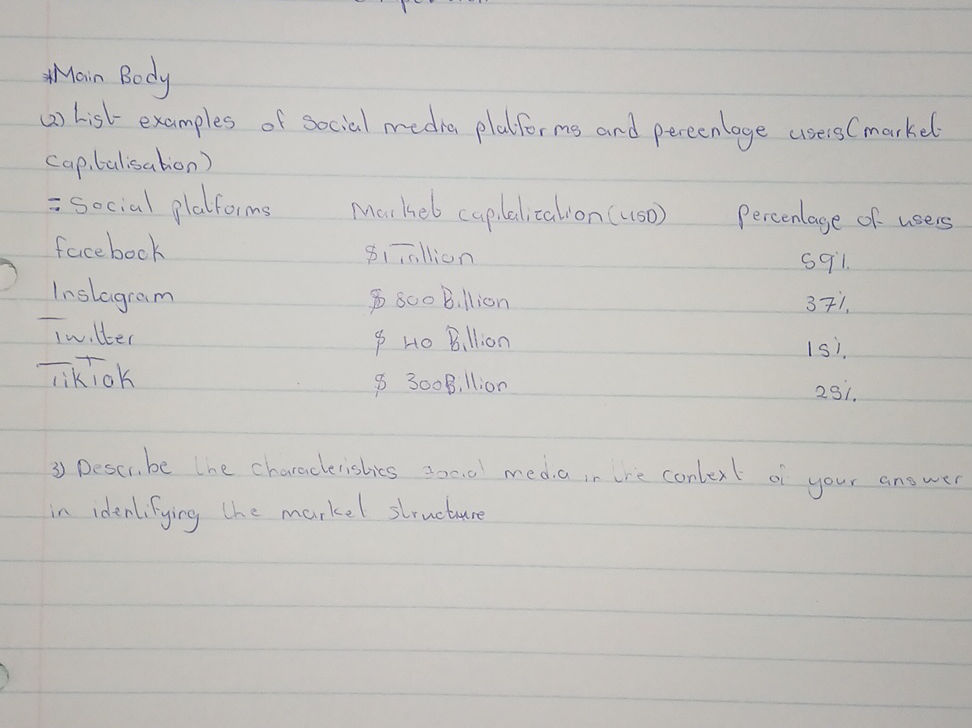 *Main Body
(2) List examples of social media platforms and percentage users (market
capitalisation)
= Social platforms Market capitalization (USD) Percentage of users
facebook $1 Trillion 59%
Instagram $ 800 Billion 37%
Twitter $ 40 Billion 15%
TikTok $ 300 Billion 25%
3) Describe the characteristics social media in the context of your answer
in identifying the market structure